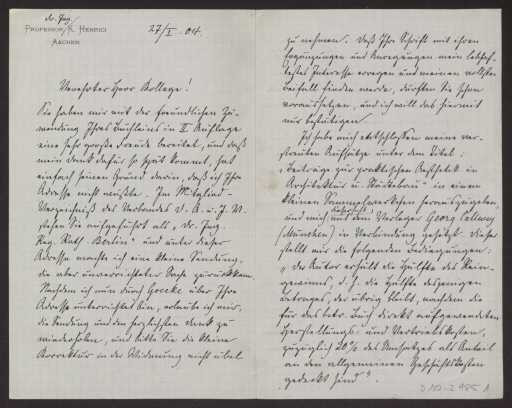 Dr. Ing.
PROFESSOR K. HENRICI
AACHEN
27/I. 04.
Verehrter Herr Kollege!
Sie haben mir mit der freundlichen Zu-
wendung Ihres Büchleins in II. Auflage
eine sehr große Freude bereitet, und daß
mein Dank dafür so spät kommt, hat
einfach seinen Grund darin, daß ich Ihre
Adresse nicht wußte. Im Mitglied-
Verzeichniß des Verbandes D. A. u. I. V.
stehen Sie aufgeführt als „Dr. Ing.
Reg. Rath Berlin" und unter dieser
Adresse machte ich eine kleine Sendung,
die aber unverrichteter Sache zurückkam.
Nachdem ich nun durch Goecke über Ihre
Adresse unterrichtet bin, erlaube ich mir,
die Sendung und den herzlichsten Dank zu
wiederholen, und bitte Sie die kleine
Korrektur in der Widmung nicht übel
zu nehmen. Daß Ihre Schrift mit ihren
Ergänzungen und Anregungen mein lebhaf-
testes Interesse erregen und meinen vollsten
Beifall finden werde, dürften Sie schon
voraussetzen, und ich will das hiermit
nur bestätigen.
Ich habe mich entschlossen meine zer-
streuten Aufsätze unter dem Titel:
„Beiträge zur praktischen Aesthetik in
Architektur u. Städtebau" in einem
kleinen Sammelwerkchen herauszugeben,
und mich mit dem Verleger Georg Callwey
(München) in Verbindung gesetzt. Dieser
stellt mir die folgenden Bedingungen:
„Der Autor erhält die Hälfte des Rein-
gewinns, d. h. die Hälfte desjenigen
Betrages, der übrig bleibt, nachdem die
für das betr. Buch direkt aufgewendeten
Herstellungs- und Vertriebskosten,
zuzüglich 20% des Umsatzes als Anteil
an den allgemeinen Geschäftskosten
gedeckt sind".